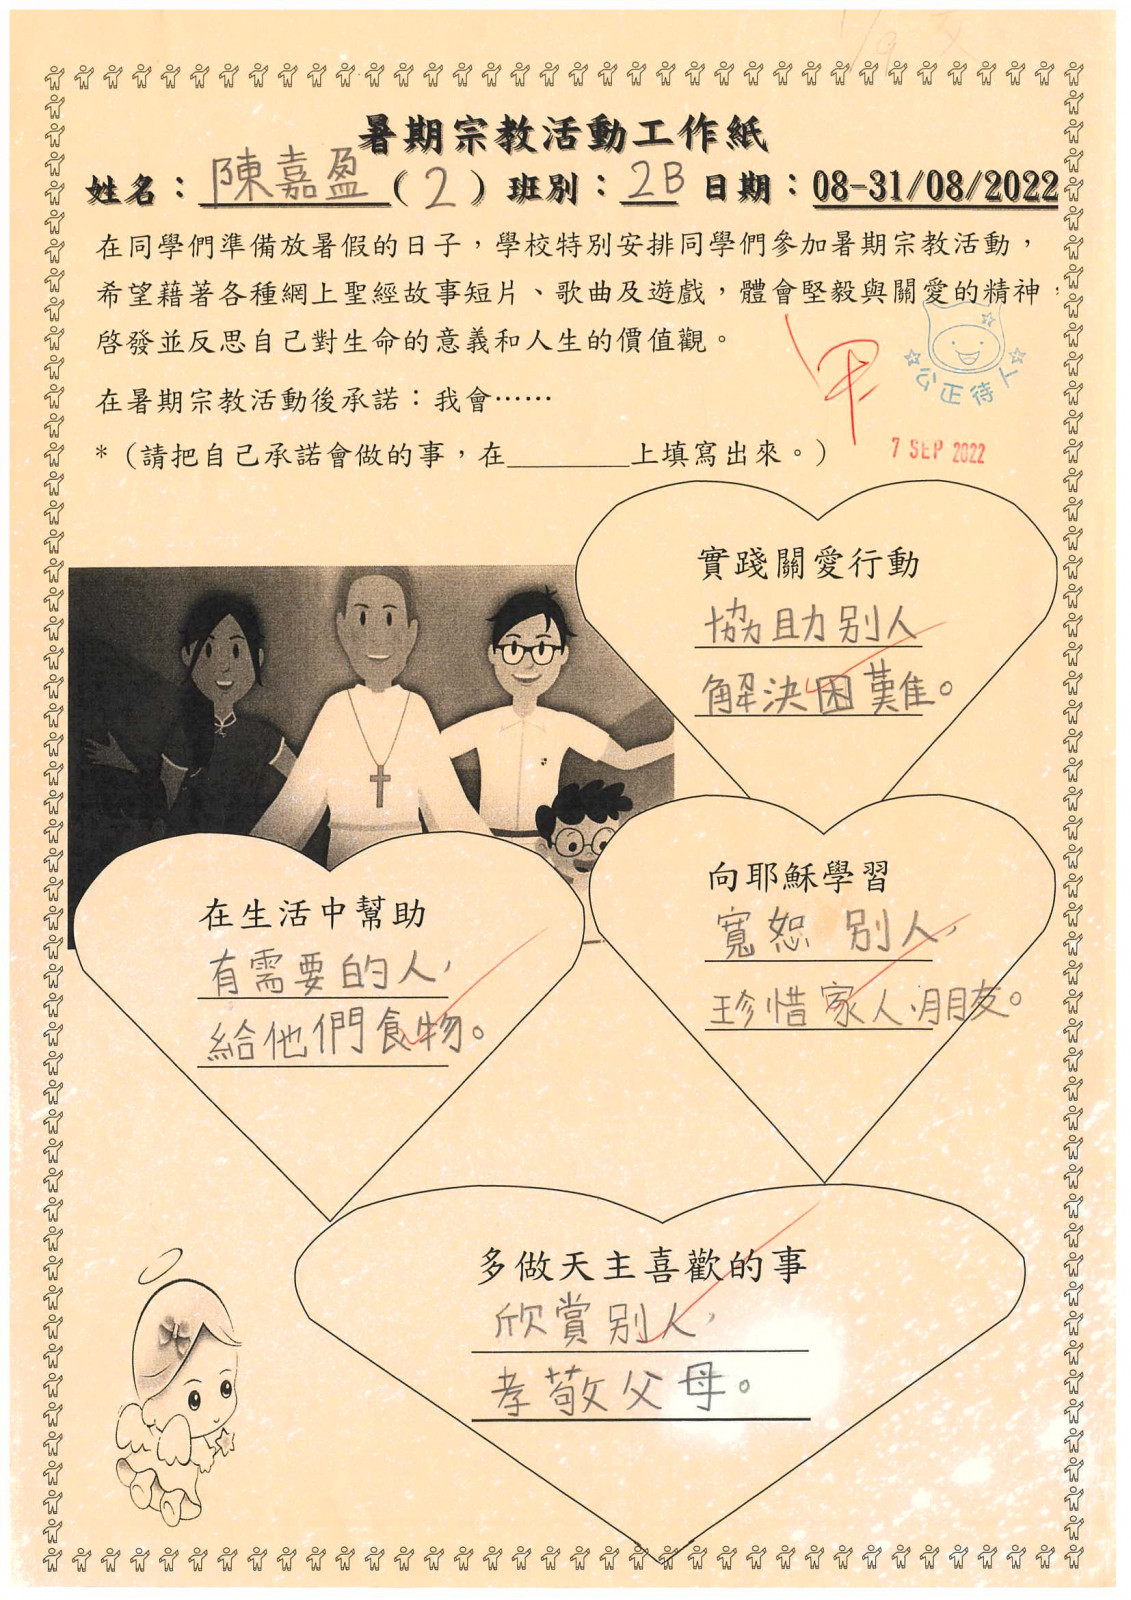 暑期宗教活動工作紙
姓名：陳嘉盈（2）班別：2B 日期：08-31/08/2022
在同學們準備放暑假的日子，學校特別安排同學們參加暑期宗教活動，
希望藉著各種網上聖經故事短片、歌曲及遊戲，體會堅毅與關愛的精神，
啓發並反思自己對生命的意義和人生的價值觀。
在暑期宗教活動後承諾：我會……
*（請把自己承諾會做的事，在________上填寫出來。）
甲
公正待人
7 SEP 2022
實踐關愛行動
協助別人
解決困難。
在生活中幫助
有需要的人，
給他們食物。
向耶穌學習
寬恕別人，
珍惜家人、朋友。
多做天主喜歡的事
欣賞別人，
孝敬父母。